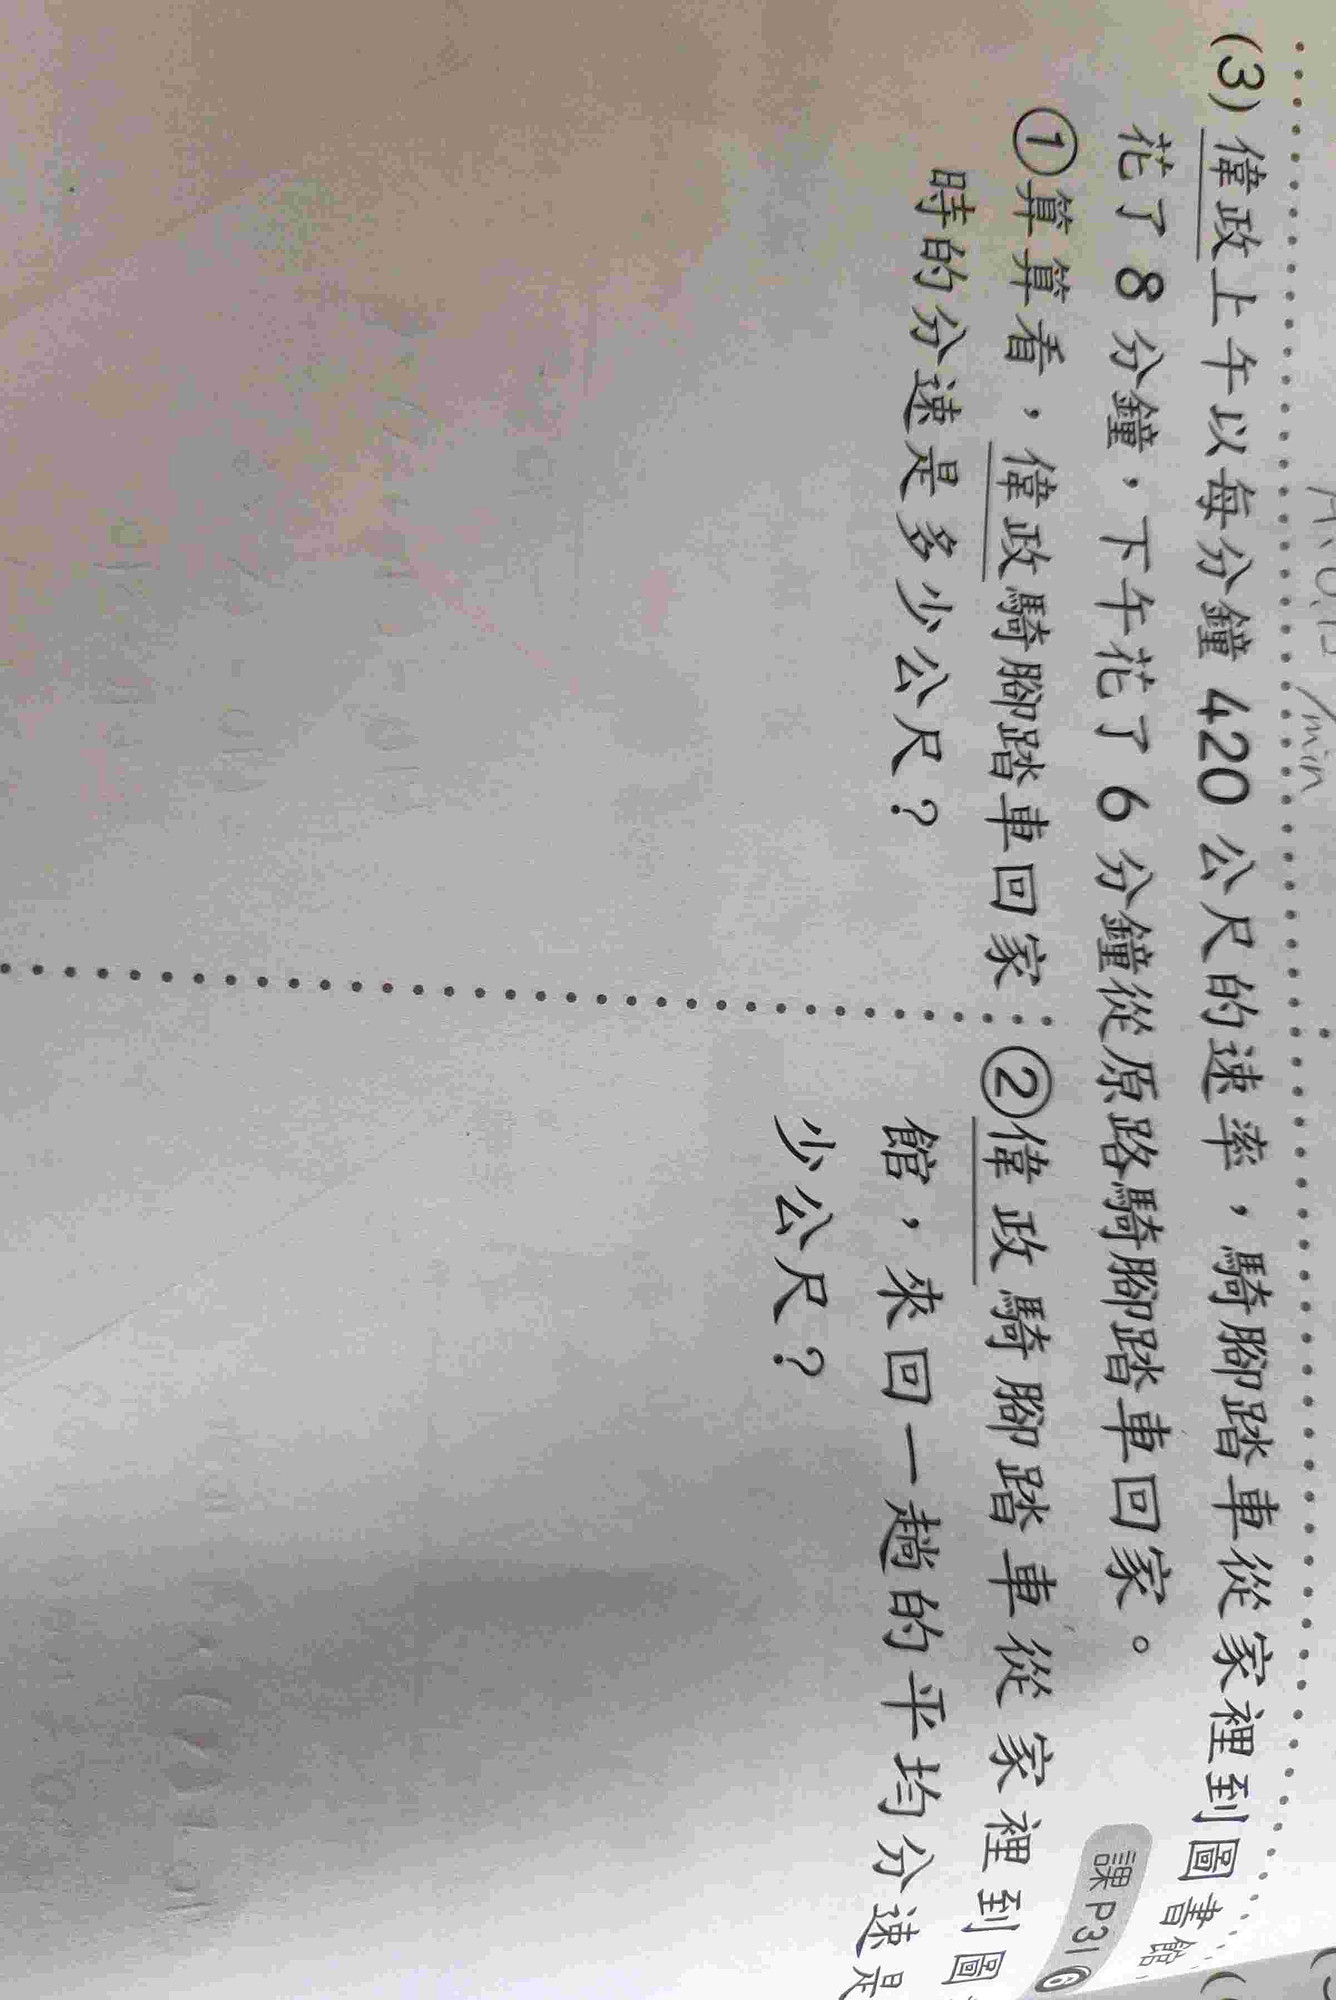 (3)偉政上午以每分鐘420公尺的速率，騎腳踏車從家裡到圖書館
花了8分鐘，下午花了6分鐘從原路騎腳踏車回家。
課P31⑥
①算算看，偉政騎腳踏車回家
時的分速是多少公尺？
②偉政騎腳踏車從家裡到圖
館，來回一趟的平均分速是
少公尺？
/min